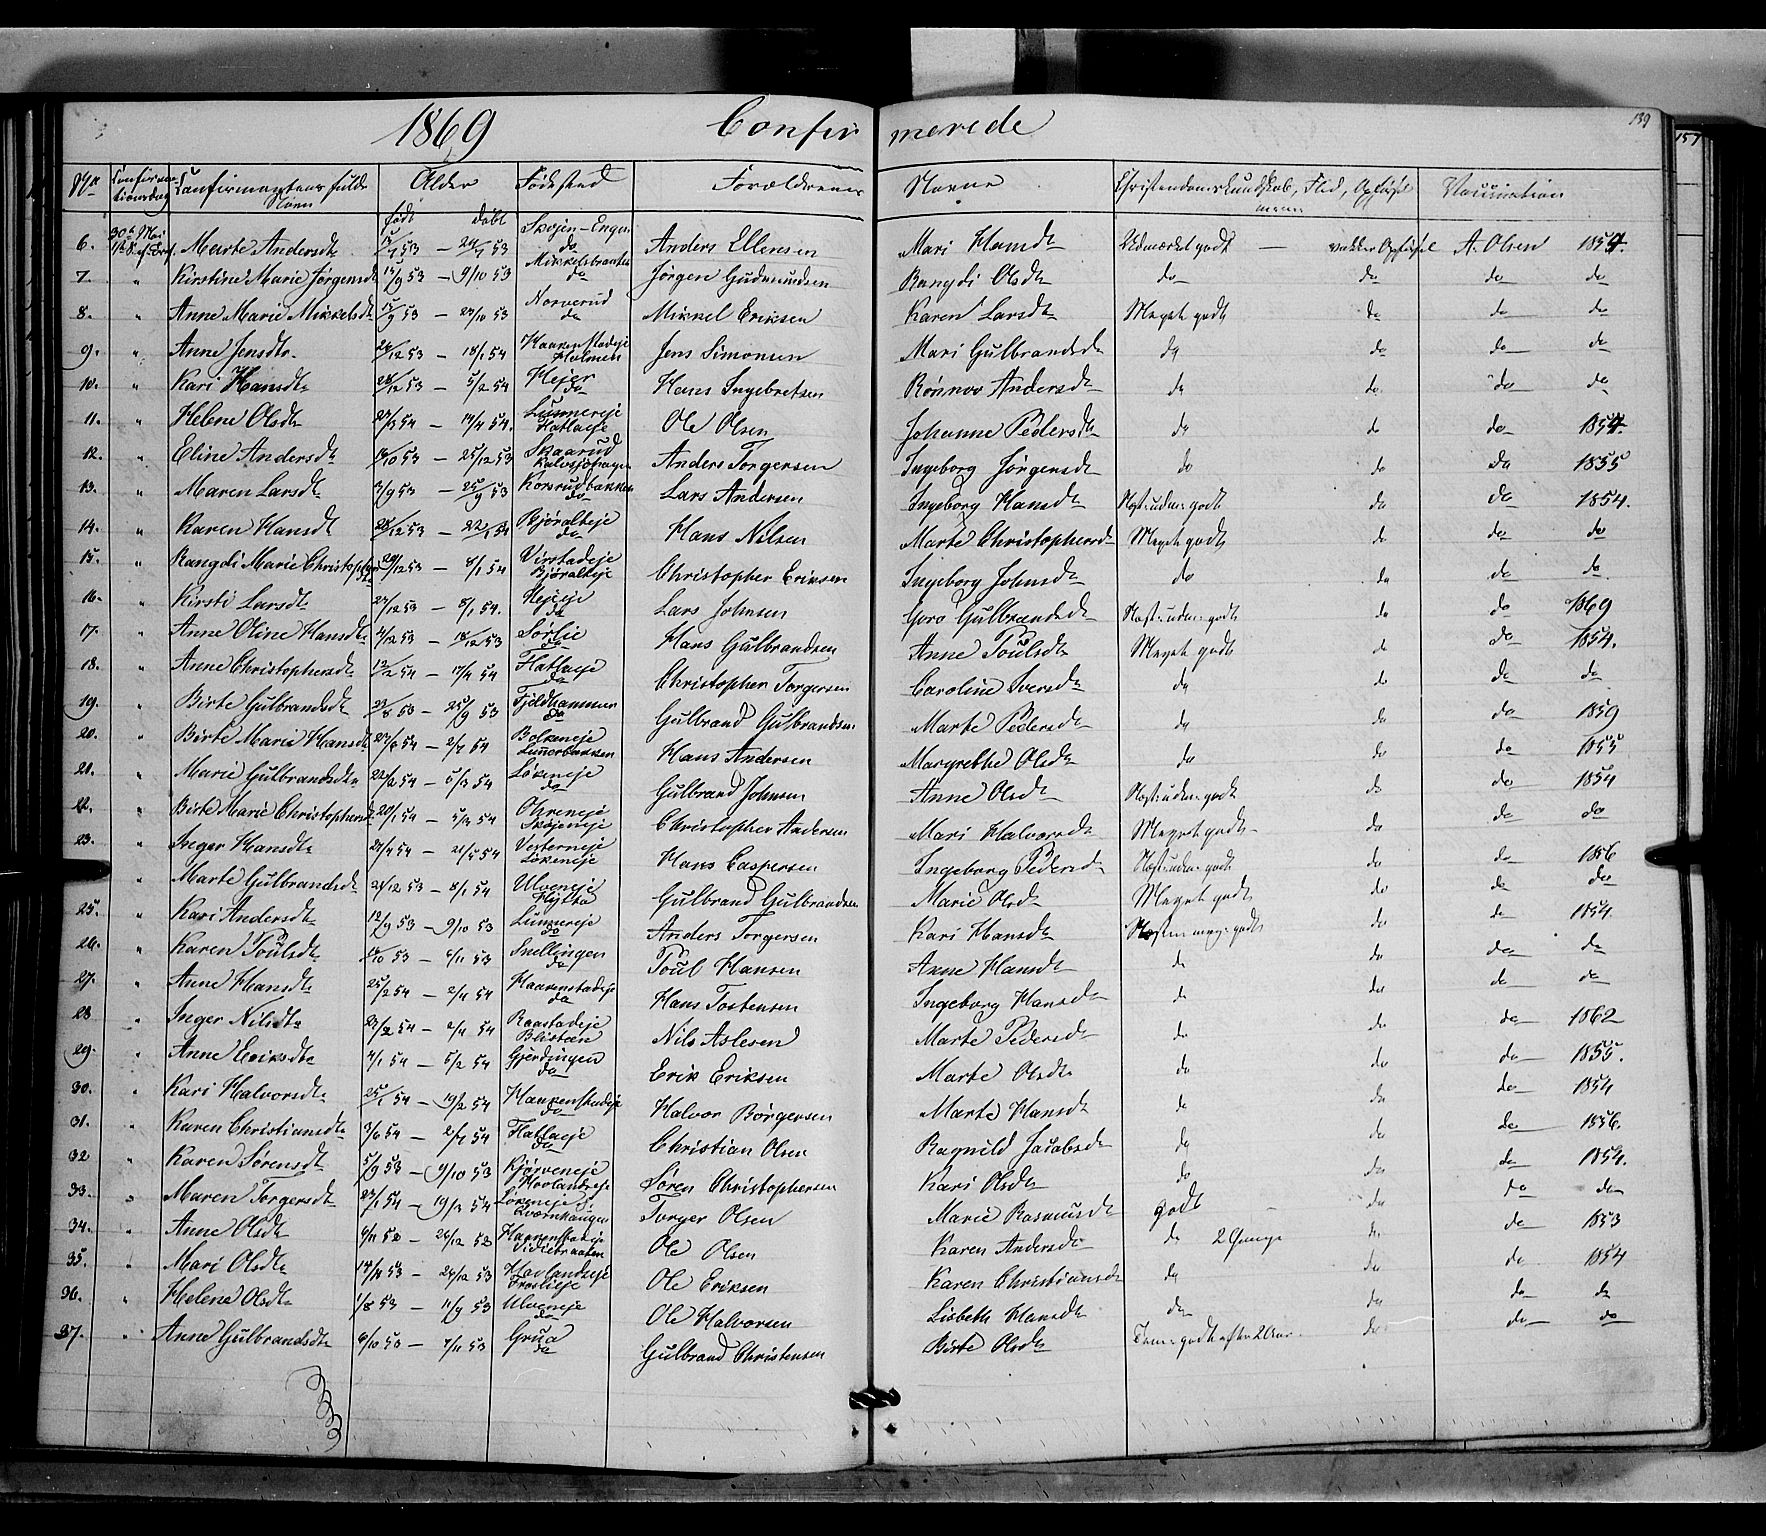 1869 Confirmerede 139
157
No Confirmationsdag Confirmantens fulde Navn Alder Fødested Forældrenes Navne Christendomskundskab, Flid, Opførsel Vaccination
født døbt
6. 30te Mai Marte Andersdtr 53 – 24/7 53 Skøjen-Engen do Anders Ellensen Mari Hansdtr Udmærket godt – vakker Opførsel A. Olsen 1854
7. " Kirstine Marie Jørgensdtr 15/9 53 – 9/10 53 Mikkelsbraaten do Jørgen Gudmundsen Rangdi Olsdtr do do do do
8. " Anne Marie Mikkelsdtr 15/9 53 – 23/10 53 Norverud do Mikkel Eriksen Karen Larsdtr Meget godt do do do
9. " Anne Jensdtr 24/12 53 – 18/1 54 Haakenstadeje Holmen Jens Simonsen Mari Gulbrandsd do do do do
10. " Kari Hansdtr 28/12 53 – 5/2 54 Hejer do Hans Ingebretsen Rønnov Andersdtr do do do do
11. " Helene Olsdtr 23/3 54 – 17/4 54. Lunnereje Flatlaeje Ole Olsen Johanne Pedersdtr do do do 1854.
12. " Eline Andersdtr 14/10 53 – 25/12 53 Skaarud Anders Torgersen Ingeborg Jørgensdtr do do do 1855
13. " Maren Larsdtr 3/9 53 – 25/9 53 Korsrudbakken do Lars Andersen Ingeborg Hansdtr Næst: udm: godt do do 1854.
14. " Karen Hansdtr 28/12 53 – 22/1 54 Bjøralteje do Hans Nilsen Marte Christophersdtr Meget godt do do do
15. " Rangdi Marie Christophersdtr 29/12 53 – 8/1 54 Virstadeje Bjøralteje Christopher Eriksen Ingeborg Johnsdtr do do do do
16. " Kirsti Larsdtr 27/12 53 – 8/1 54. Hejeje do Lars Johnsen Goro Gulbrandsdtr Næst: udm: godt do do 1869
17. " Anne Oline Hansdtr 4/12 53 – 18/12 53 Sørlie do Hans Gulbrandsen Anne Poulsdtr Meget godt do do 1854.
18. " Anne Christophersdtr 12/2 54 – 17/4 54 Flatlaeje do Christopher Torgersen Caroline Iversdtr do do do do
19. " Birte Gulbrandsdtr 23/8 53 – 25/9 53 Fjeldhammer do Gulbrand Gulbrandsen Marte Pedersdtr do do do 1859
20. " Birte Marie Hansdtr 54 – 2/4 54 Bolkeneje Lunnerbakken Hans Andersen Margrethe Olsdtr do do do 1855
21. " Marie Gulbrandsdtr 22/2 54 – 5/3 54 Løkeneje do Gulbrand Johnsen Anne Olsdtr Næst: udm: godt do do 1854
22. " Birte Marie Christophersdtr 20/1 54 – 5/3 54 Ohreneje Skøjeneje Christopher Andersen Mari Halvorsdtr Meget godt do do do
23. " Inger Hansdtr 27/4 54 – 21/5 54 Vesterneje Løkeneje Hans Caspersen Ingeborg Pedersdtr Næst: udm: godt do do 1856
" Marte Gulbrandsdtr 21/12 53 – 8/1 54 Ulveneje Hytta Gulbrand Gulbrandsen Marie Olsdtr Meget godt do do do
25. " Kari Andersdtr 12/9 53 – 9/10 53 Lunnereje do Anders Torgersen Kari Hansdtr Næsten meg: godt do do 1854.
26. " Karen Poulsdtr 53 – 6/11 53 Snellingen do Poul Hansen Anne Hansdtr do do do do
27. " Anne Hansdtr 25/2 54 – 2/4 54 Haakenstadeje do Hans Tostensen Ingeborg Hansdtr do do do do
28 " Inger Nilsdtr 23/2 54 – 2/4 54 Raastadeje Blistæn Nils Aslesen Marte Pedersdtr do do do 1862
29. " Anne Eriksdtr 4/1 54 – 5/2 54 Gjerdingen do Erik Eriksen Marte Olsdtr do do do 1855.
30. " Kari Halvorsdtr 25/1 54 – 19/2 54 Haakenstadeje do Halvor Børgersen Marte Hansdtr do do do 1854
31. " Karen Christiansdtr 54 – 2/4 54 Flatlaeje do Christian Olsen Ragnild Jacobsdtr do do do 1856.
32 " Karen Sørensdtr 5/9 53 – 9/10 53 Kjørveneje Hovlandseje Søren Christophersen Kari Olsdtr do do do 1854.
33. " Maren Torgersdtr 23/1 54 – 19/3 54 Løkeneje Kværnhaugen Torger Olsen Marie Rasmusdtr godt do do do
34. " Anne Olsdtr 52 – 26/12 52 Haakenstadeje Ole Olsen Karen Andersdtr do 2 Gange do do 1853
35. " Mari Olsdtr 53 – 26/12 53 Hovlandseje Froslieje Ole Eriksen Karen Christiansdtr do do do 1854
36. " Helene Olsdtr 1/8 53 – 11/9 53 Ulveneje do Ole Halvorsen Lisbeth Hansdtr do do do do
37. " Anne Gulbrandsdtr 9/10 53 – 7/11 53 Grua do Gulbrand Christensen Birte Olsdtr Tem: godt efter 2 Aar. do do do